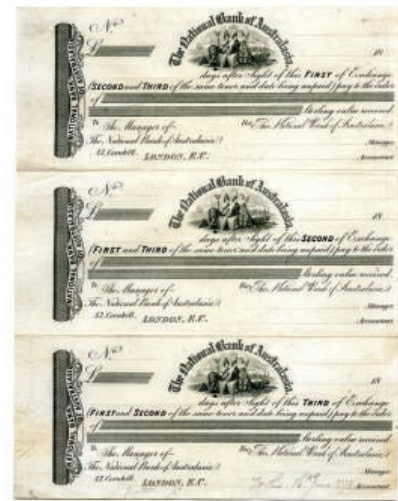 NATIONAL BANK OF AUSTRALASIA
No.
The National Bank of Australasia,
£
18
days after Sight of this FIRST of Exchange
(SECOND and THIRD of the same tenor and date being unpaid) pay to the order
of
Sterling value received.
To The Manager of
For The National Bank of Australasia
The National Bank of Australasia
Manager
47, Cornhill,
LONDON, E.C.
Accountant
NATIONAL BANK OF AUSTRALASIA
No.
The National Bank of Australasia,
£
18
days after Sight of this SECOND of Exchange
(FIRST and THIRD of the same tenor and date being unpaid) pay to the order
of
Sterling value received.
To The Manager of
For The National Bank of Australasia
The National Bank of Australasia
Manager
47, Cornhill,
LONDON, E.C.
Accountant
NATIONAL BANK OF AUSTRALASIA
No.
The National Bank of Australasia,
£
18
days after Sight of this THIRD of Exchange
(FIRST and SECOND of the same tenor and date being unpaid) pay to the order
of
Sterling value received.
To The Manager of
For The National Bank of Australasia
The National Bank of Australasia
Manager
47, Cornhill,
LONDON, E.C.
Accountant